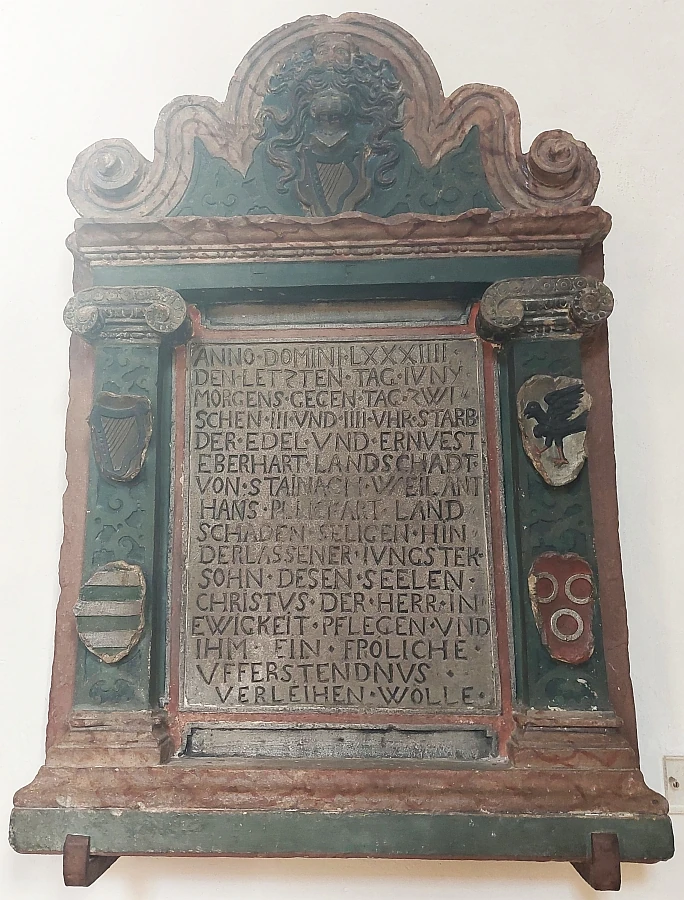 ANNO·DOMINI·LXXXIIII·
DEN·LETSTEN·TAG·IVNY
MORGENS·GEGEN·TAG·ZWI
SCHEN·III·VND·IIII·VHR·STARB
DER·EDEL·VND·ERNVEST
EBERHART·LANDSCHADT·
VON·STAINACH·WEILANT
HANS·ART·LAND
SCHADEN·SELIGEN·HIN
DERLASSENER·IVNGSTER·
SOHN·DESEN·SEELEN·
CHRISTVS·DER·HERR·IN
EWIGKEIT·PFLEGEN·VND
IHM·EIN·FROLICHE·
VFFERSTENDNVS·
VERLEIHEN·WOLLE·